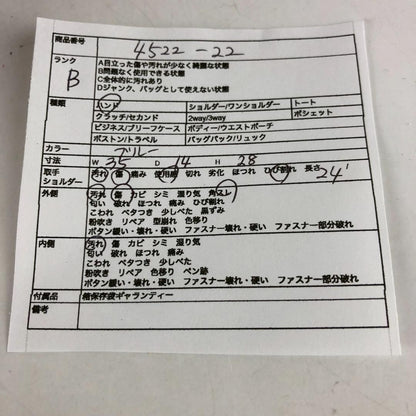 商品番号 4522-22
ランク B
A目立った傷や汚れが少なく綺麗な状態
B問題なく使用できる状態
C全体的に汚れあり
Dジャンク、バッグとして使えない状態
種類 ハンド ショルダー/ワンショルダー トート
クラッチ/セカンド 2way/3way ポシェット
ビジネス/ブリーフケース ボディー/ウエストポーチ
ボストン/トラベル バッグパック/リュック
カラー ブルー
寸法 W 35 D 14 H 28
取手 ショルダー 汚れ 傷 痛み 使用感 切れ 劣化 ほつれ ひび割れ 長さ 24
外側 汚れ 傷 カビ シミ 湿り気 角スレ
匂い 破れ ほつれ 痛み ひび割れ
こわれ ベタつき 少しべた 黒ずみ
粉吹き リペア 型崩れ 色移り
ボタン緩い・壊れ・硬い ファスナー壊れ・硬い ファスナー部分破れ
内側 汚れ 傷 カビ シミ 湿り気
匂い 破れ ほつれ 痛み
こわれ ベタつき 少しべた
粉吹き リペア 色移り ペン跡
ボタン緩い・壊れ・硬い ファスナー壊れ・硬い ファスナー部分破れ
付属品 箱保存袋ギャランティー
備考